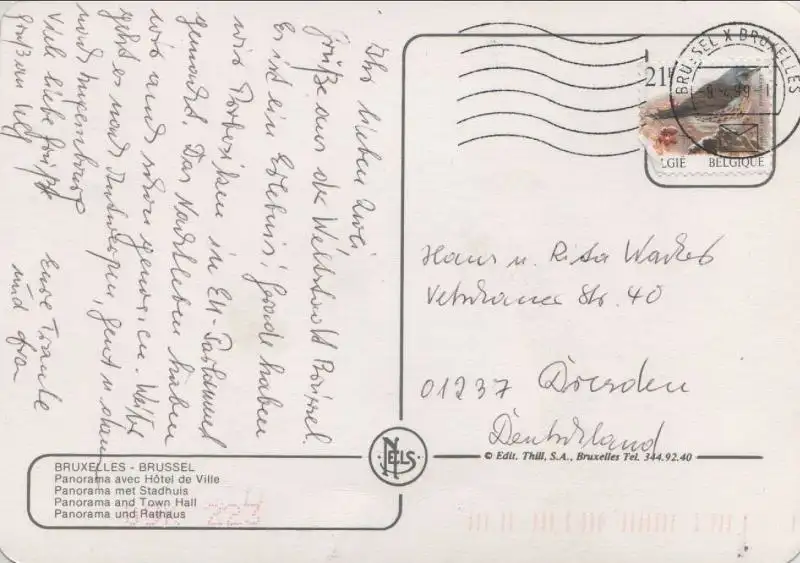 Ihr lieben Zwei
Grüße aus der Weltstadt Brüssel.
Es ist ein Erlebnis! Gerade haben
wir Fortrücken in EU-Parlament
gemacht. Das Nachtleben haben
wir auch schon genossen. Weiter
geht es nach Antwerpen, Gent u. dann
nach Luxemburg
Viele liebe Grüße
Gruß an
Eure Traute
und
21F
BRUSSEL X BRUXELLES
-8-4.99
BELGIQUE
Hans u. Rita
Str. 40
01237 Dresden
Deutschland
NELS
© Edit. Thill, S.A., Bruxelles Tel. 344.92.40
BRUXELLES - BRUSSEL
Panorama avec Hôtel de Ville
Panorama met Stadhuis
Panorama and Town Hall
Panorama und Rathaus